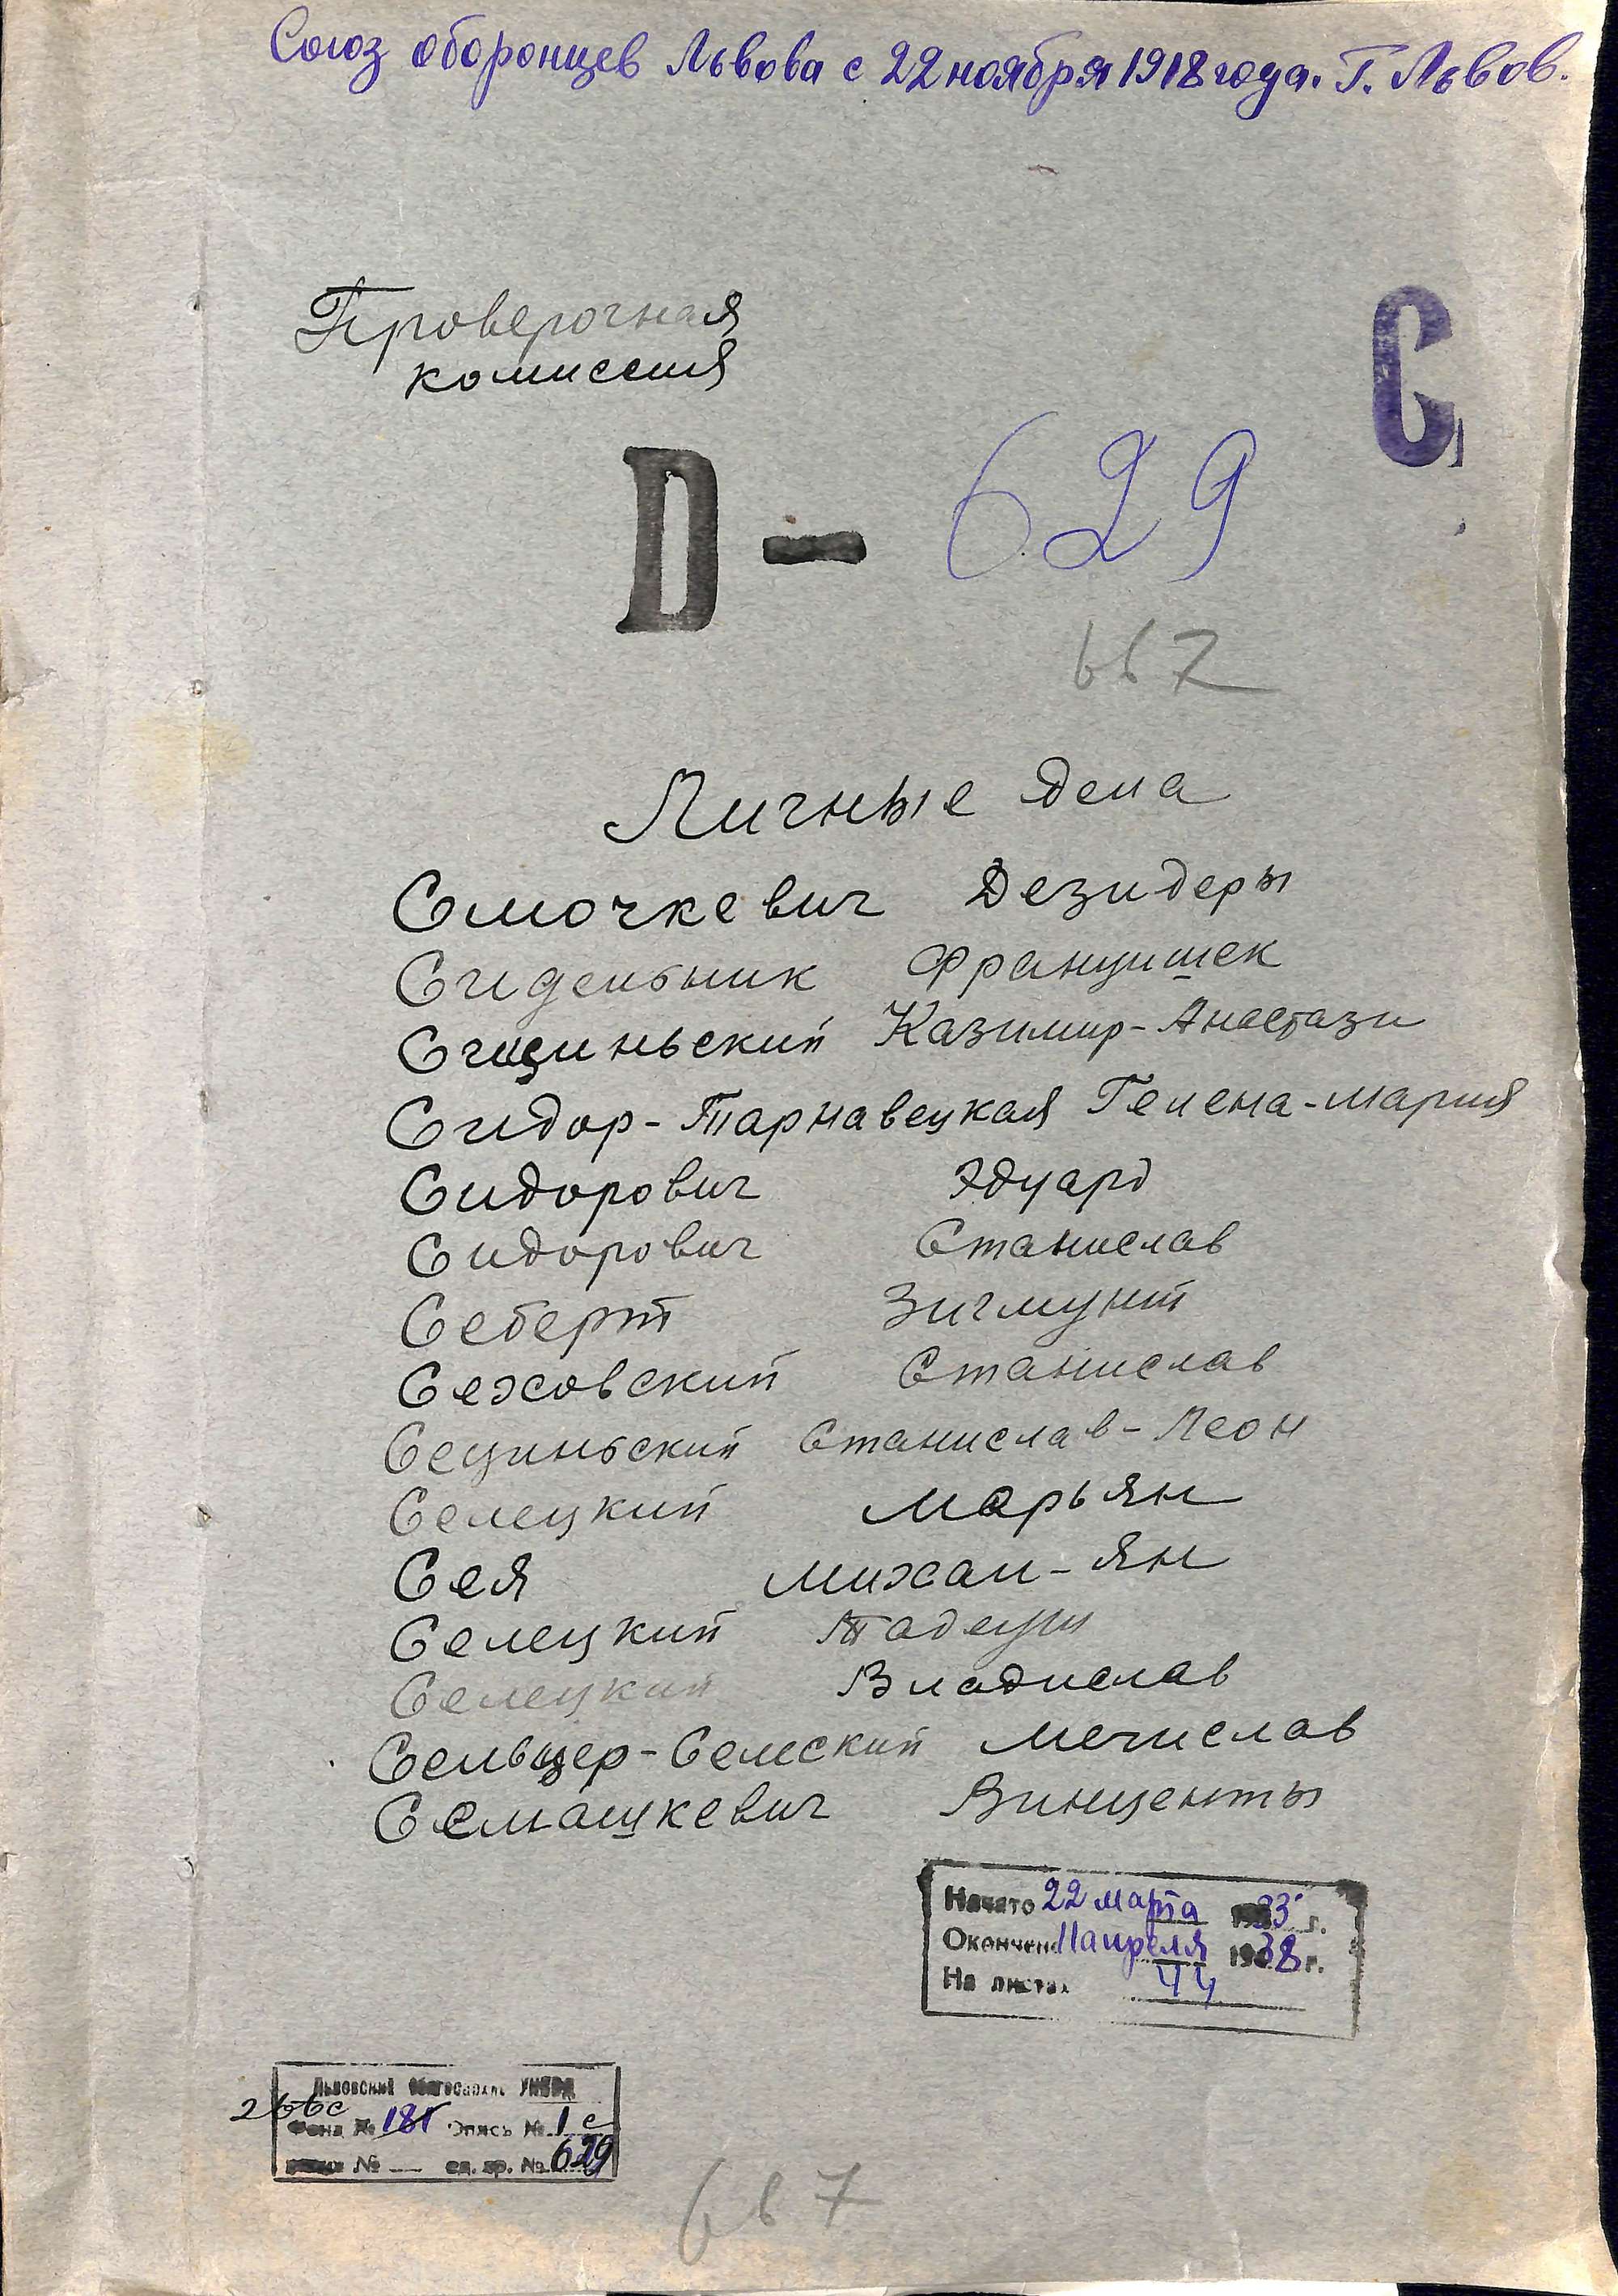 Союз оборонцев Львова с 22 ноября 1918 года. Г. Львов.
Проверочная
комиссия
С
D - 629
667
Личные дела
Смочкевич Дезидеры
Сидельник Францишек
Сициньский Казимир-Анастази
Сидор-Тарнавецкая Гелена-Мария
Сидорович Эдуард
Сидорович Станислав
Себерт Зигмунт
Сеховский Станислав
Сециньский Станислав-Леон
Селецкий Марьян
Сея Михал-Ян
Селецкий Тадеуш
Селецкий Владислав
Сельцер-Селский Мечислав
Семашкевич Винценты
Начато 22 марта 1933 г.
Окончено 11 апреля 1938 г.
На листах 44
Львовский Облгосархив УНКВД
266с
Фонд № 181 Опись № 1с
№ — ед. хр. № 629
667